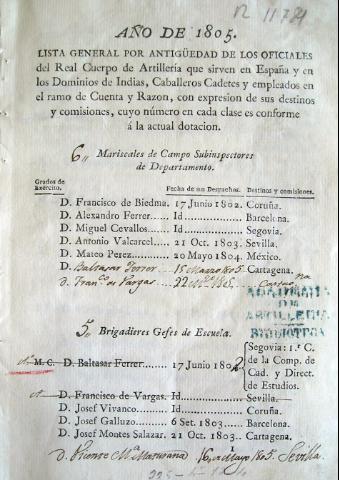 AÑO DE 1805.
LISTA GENERAL POR ANTIGÜEDAD DE LOS OFICIALES
del Real Cuerpo de Artillería que sirven en España y en
los Dominios de Indias, Caballeros Cadetes y empleados en
el ramo de Cuenta y Razon, con expresion de sus destinos
y comisiones, cuyo número en cada clase es conforme
á la actual dotacion.
6,, Mariscales de Campo Subinspectores
de Departamento.
Grados de Exército. Fecha de sus Despachos. Destinos y comisiones.
D. Francisco de Biedma. 17 Junio 1802. Coruña.
D. Alexandro Ferrer. Id. Barcelona.
D. Miguel Cevallos. Id. Segovia.
D. Antonio Valcarcel. 21 Oct. 1803. Sevilla.
D. Mateo Perez. 20 Mayo 1804. México.
D. Baltasar Ferrer. 15 Marzo 1805. Cartagena.
D. Franco de Vargas. 22
ACADEMIA
DE
ARTILLERIA
BIBLIOTECA
5,, Brigadieres Gefes de Escuela.
M. C. D. Baltasar Ferrer. 17 Junio 1802 Segovia: 1.º C.
de la Comp. de
Cad. y Direct.
de Estudios.
D. Francisco de Vargas. Id. Sevilla.
D. Josef Vivanco. Id. Coruña.
D. Josef Galluzo. 6 Set. 1803. Barcelona.
D. Josef Montes Salazar. 21 Oct. 1803. Cartagena.
D. Vicente Ma. Maturana 16 Mayo 1805. Sevilla.